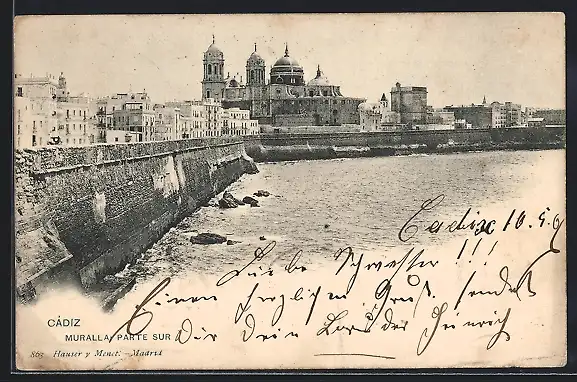 Cadix 10.5.
Liebe Schwester !!!
Einen herzlichen Gruß sendet
Dir Dein Bruder Heinrich
CÁDIZ
MURALLA, PARTE SUR
863 Hauser y Menet.- Madrid